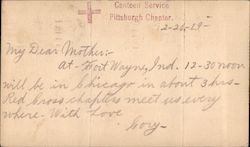 Canteen Service
Pittsburgh Chapter.
2-26-19-
My Dear Mother:-
At - Fort Wayne, Ind. 12-30 noon
will be in Chicago in about 3 hrs -
Red Cross chapters meet us every
where - With Love
Cory -